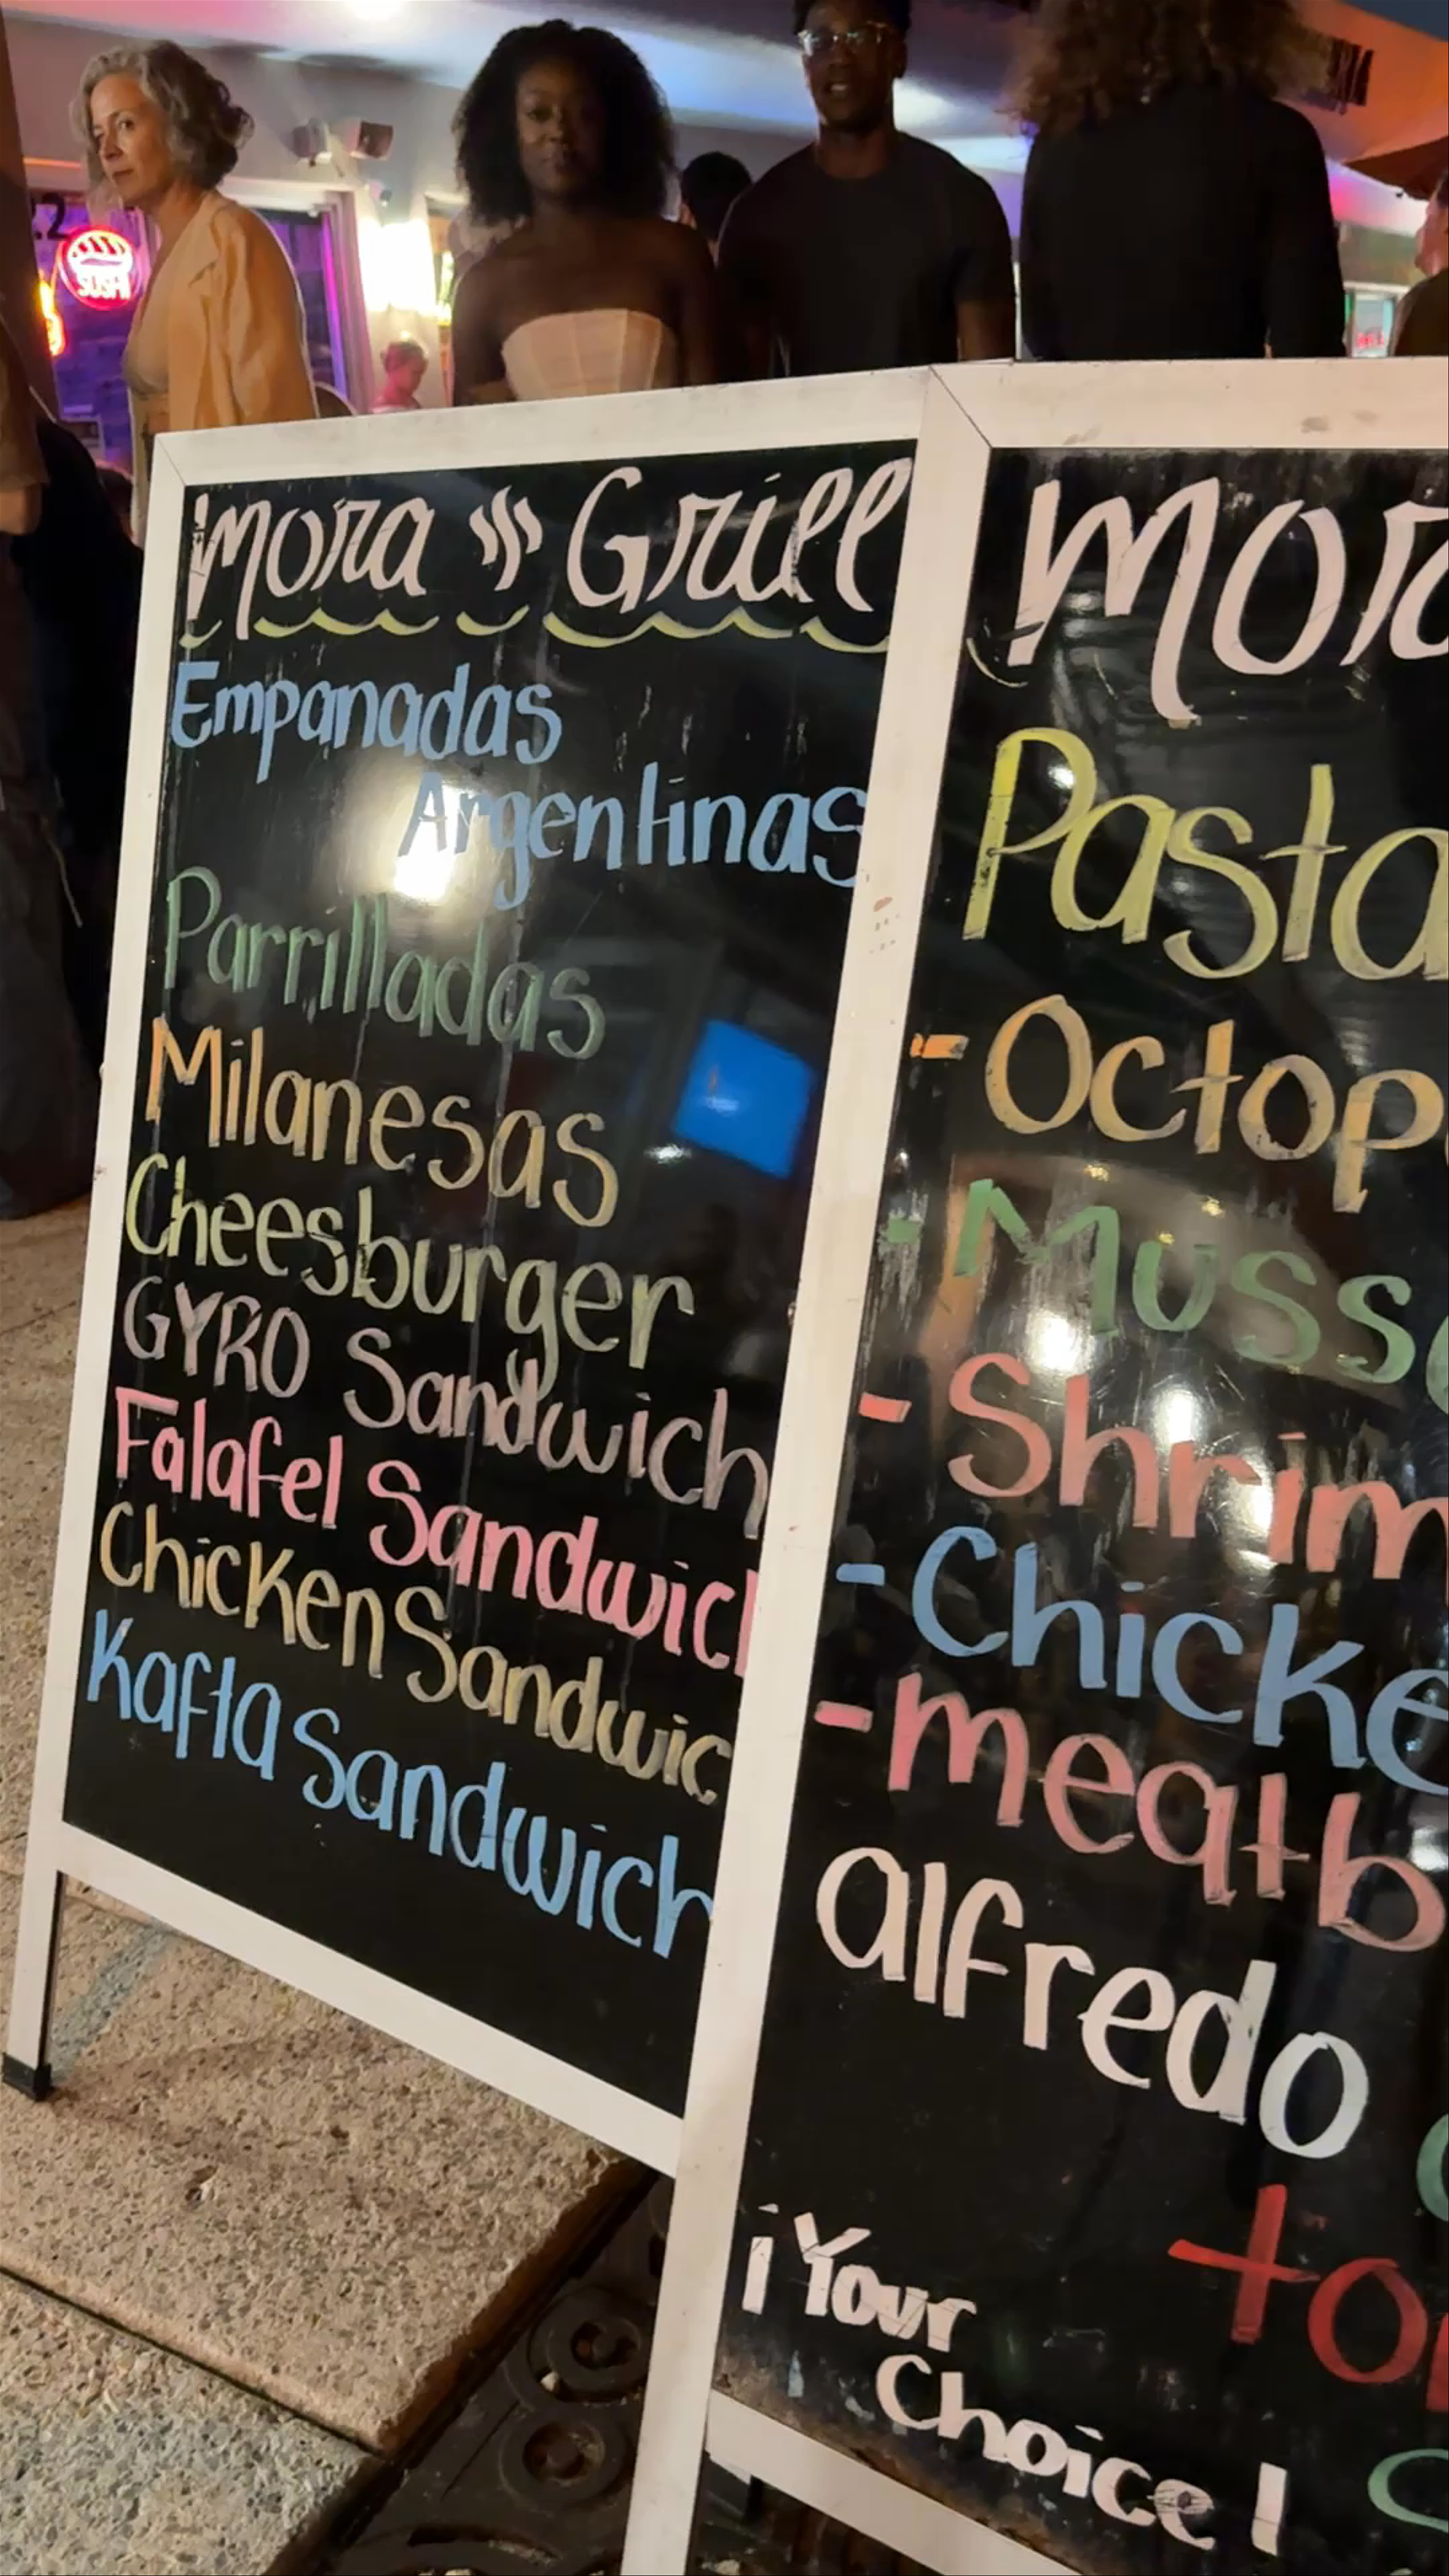 SUSHI
Mora Grill
Empanadas
Argentinas
Parrilladas
Milanesas
Cheesburger
GYRO Sandwich
Falafel Sandwich
Chicken Sandwic
Kafta Sandwich
Mor
Pasta
- Octop
- Muss
- Shrim
- Chicke
- meatb
alfredo
to
¡Your
Choice!